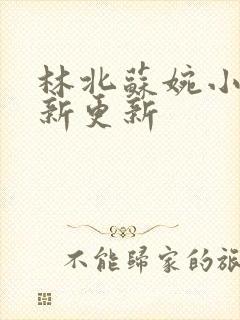 林北蘇婉小
新更新
不能歸家的旅